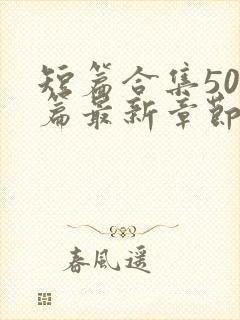 短篇合集50
篇最新章節
春風遥